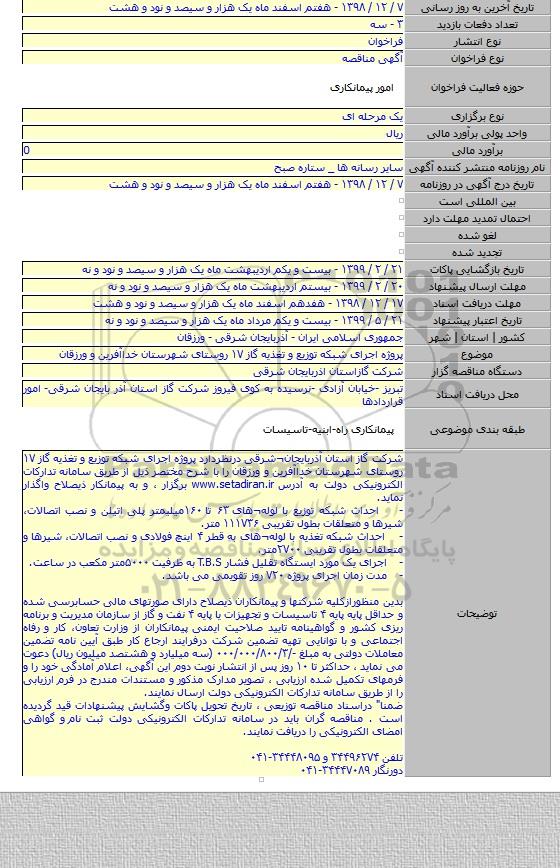 تاریخ آخرین به روز رسانی ۷ / ۱۲ / ۱۳۹۸ - هفتم اسفند ماه یک هزار و سیصد و نود و هشت
تعداد دفعات بازدید ۳ - سه
نوع انتشار فراخوان
نوع فراخوان آگهی مناقصه
حوزه فعالیت فراخوان امور پیمانکاری
نوع برگزاری یک مرحله ای
واحد پولی برآورد مالی ریال
برآورد مالی 0
نام روزنامه منتشر کننده آگهی سایر رسانه ها _ ستاره صبح
تاریخ درج آگهی در روزنامه ۷ / ۱۲ / ۱۳۹۸ - هفتم اسفند ماه یک هزار و سیصد و نود و هشت
بین المللی است
احتمال تمدید مهلت دارد
لغو شده
تجدید شده
تاریخ بازگشایی پاکات ۲۱ / ۲ / ۱۳۹۹ - بیست و یکم اردیبهشت ماه یک هزار و سیصد و نود و نه
مهلت ارسال پیشنهاد ۲۰ / ۲ / ۱۳۹۹ - بیستم اردیبهشت ماه یک هزار و سیصد و نود و نه
مهلت دریافت اسناد ۱۷ / ۱۲ / ۱۳۹۸ - هفدهم اسفند ماه یک هزار و سیصد و نود و هشت
تاریخ اعتبار پیشنهاد ۲۱ / ۵ / ۱۳۹۹ - بیست و یکم مرداد ماه یک هزار و سیصد و نود و نه
کشور | استان | شهر جمهوری اسلامی ایران - آذربایجان شرقی - ورزقان
موضوع پروژه اجرای شبکه توزیع و تغذیه گاز ۱۷ روستای شهرستان خداآفرین و ورزقان
دستگاه مناقصه گزار شرکت گازاستان اذربایجان شرقی
محل دریافت اسناد تبریز -خیابان آزادی -نرسیده به کوی فیروز شرکت گاز استان آذر بایجان شرقی- امور
قراردادها
طبقه بندی موضوعی پیمانکاری راه-ابنیه-تاسیسات
توضیحات
شرکت گاز استان آذربایجان¬شرقی درنظردارد پروژه اجرای شبکه توزیع و تغذیه گاز ۱۷
روستای شهرستان خداآفرین و ورزقان را با شرح مختصر ذیل از طریق سامانه تدارکات
الکترونیکی دولت به آدرس www.setadiran.ir برگزار ، و به پیمانکار ذیصلاح واگذار
نماید.
- احداث شبکه توزیع با لوله¬های ۶۳ تا ۱۶۰میلیمتر پلی اتیلن و نصب اتصالات،
شیرها و متعلقات بطول تقریبی ۱۱۱۷۳۶ متر.
- احداث شبکه تغذیه با لوله¬های به قطر ۴ اینچ فولادی و نصب اتصالات، شیرها و
متعلقات بطول تقریبی ۲۷۰۰متر.
- اجرای یک مورد ایستگاه تقلیل فشار T.B.S به ظرفیت ۵۰۰۰متر مکعب در ساعت.
- مدت زمان اجرای پروژه ۷۲۰ روز تقویمی می باشد.
بدین منظورازکلیه شرکتها و پیمانکاران ذیصلاح دارای صورتهای مالی حسابرسی شده
و حداقل پایه پایه ۴ تاسیسات و تجهیزات یا پایه ۴ نفت و گاز از سازمان مدیریت و برنامه
ریزی کشور و گواهینامه تایید صلاحیت ایمنی پیمانکاران از وزارت تعاون، کار و رفاه
اجتماعی و با توانایی تهیه تضمین شرکت درفرآیند ارجاع کار طبق آیین نامه تضمین
معاملات دولتی به مبلغ -/۰۰۰/۰۰۰/۸۰۰/۳ (سه میلیارد و هشتصد میلیون ریال) دعوت
می نماید ، حداکثر تا ۱۰ روز پس از انتشار نوبت دوم این آگهی، اعلام آمادگی خود را و
فرمهای تکمیل شده ارزیابی ، تصویر مدارک مذکور و مستندات مندرج در فرم ارزیابی
را از طریق سامانه تدارکات الکترونیکی دولت ارسال نمایند.
ضمنا" دراسناد مناقصه توزیعی ، تاریخ تحویل پاکات وگشایش پیشنهادات قید گردیده
است . مناقصه گران باید در سامانه تدارکات الکترونیکی دولت ثبت نام و گواهی
امضای الکترونیکی را دریافت نمایند.
تلفن ۳۴۴۹۶۲۷۴ و ۳۴۴۴۸۰۹۵-۰۴۱
دورنگار ۳۴۴۴۷۰۸۹-۰۴۱